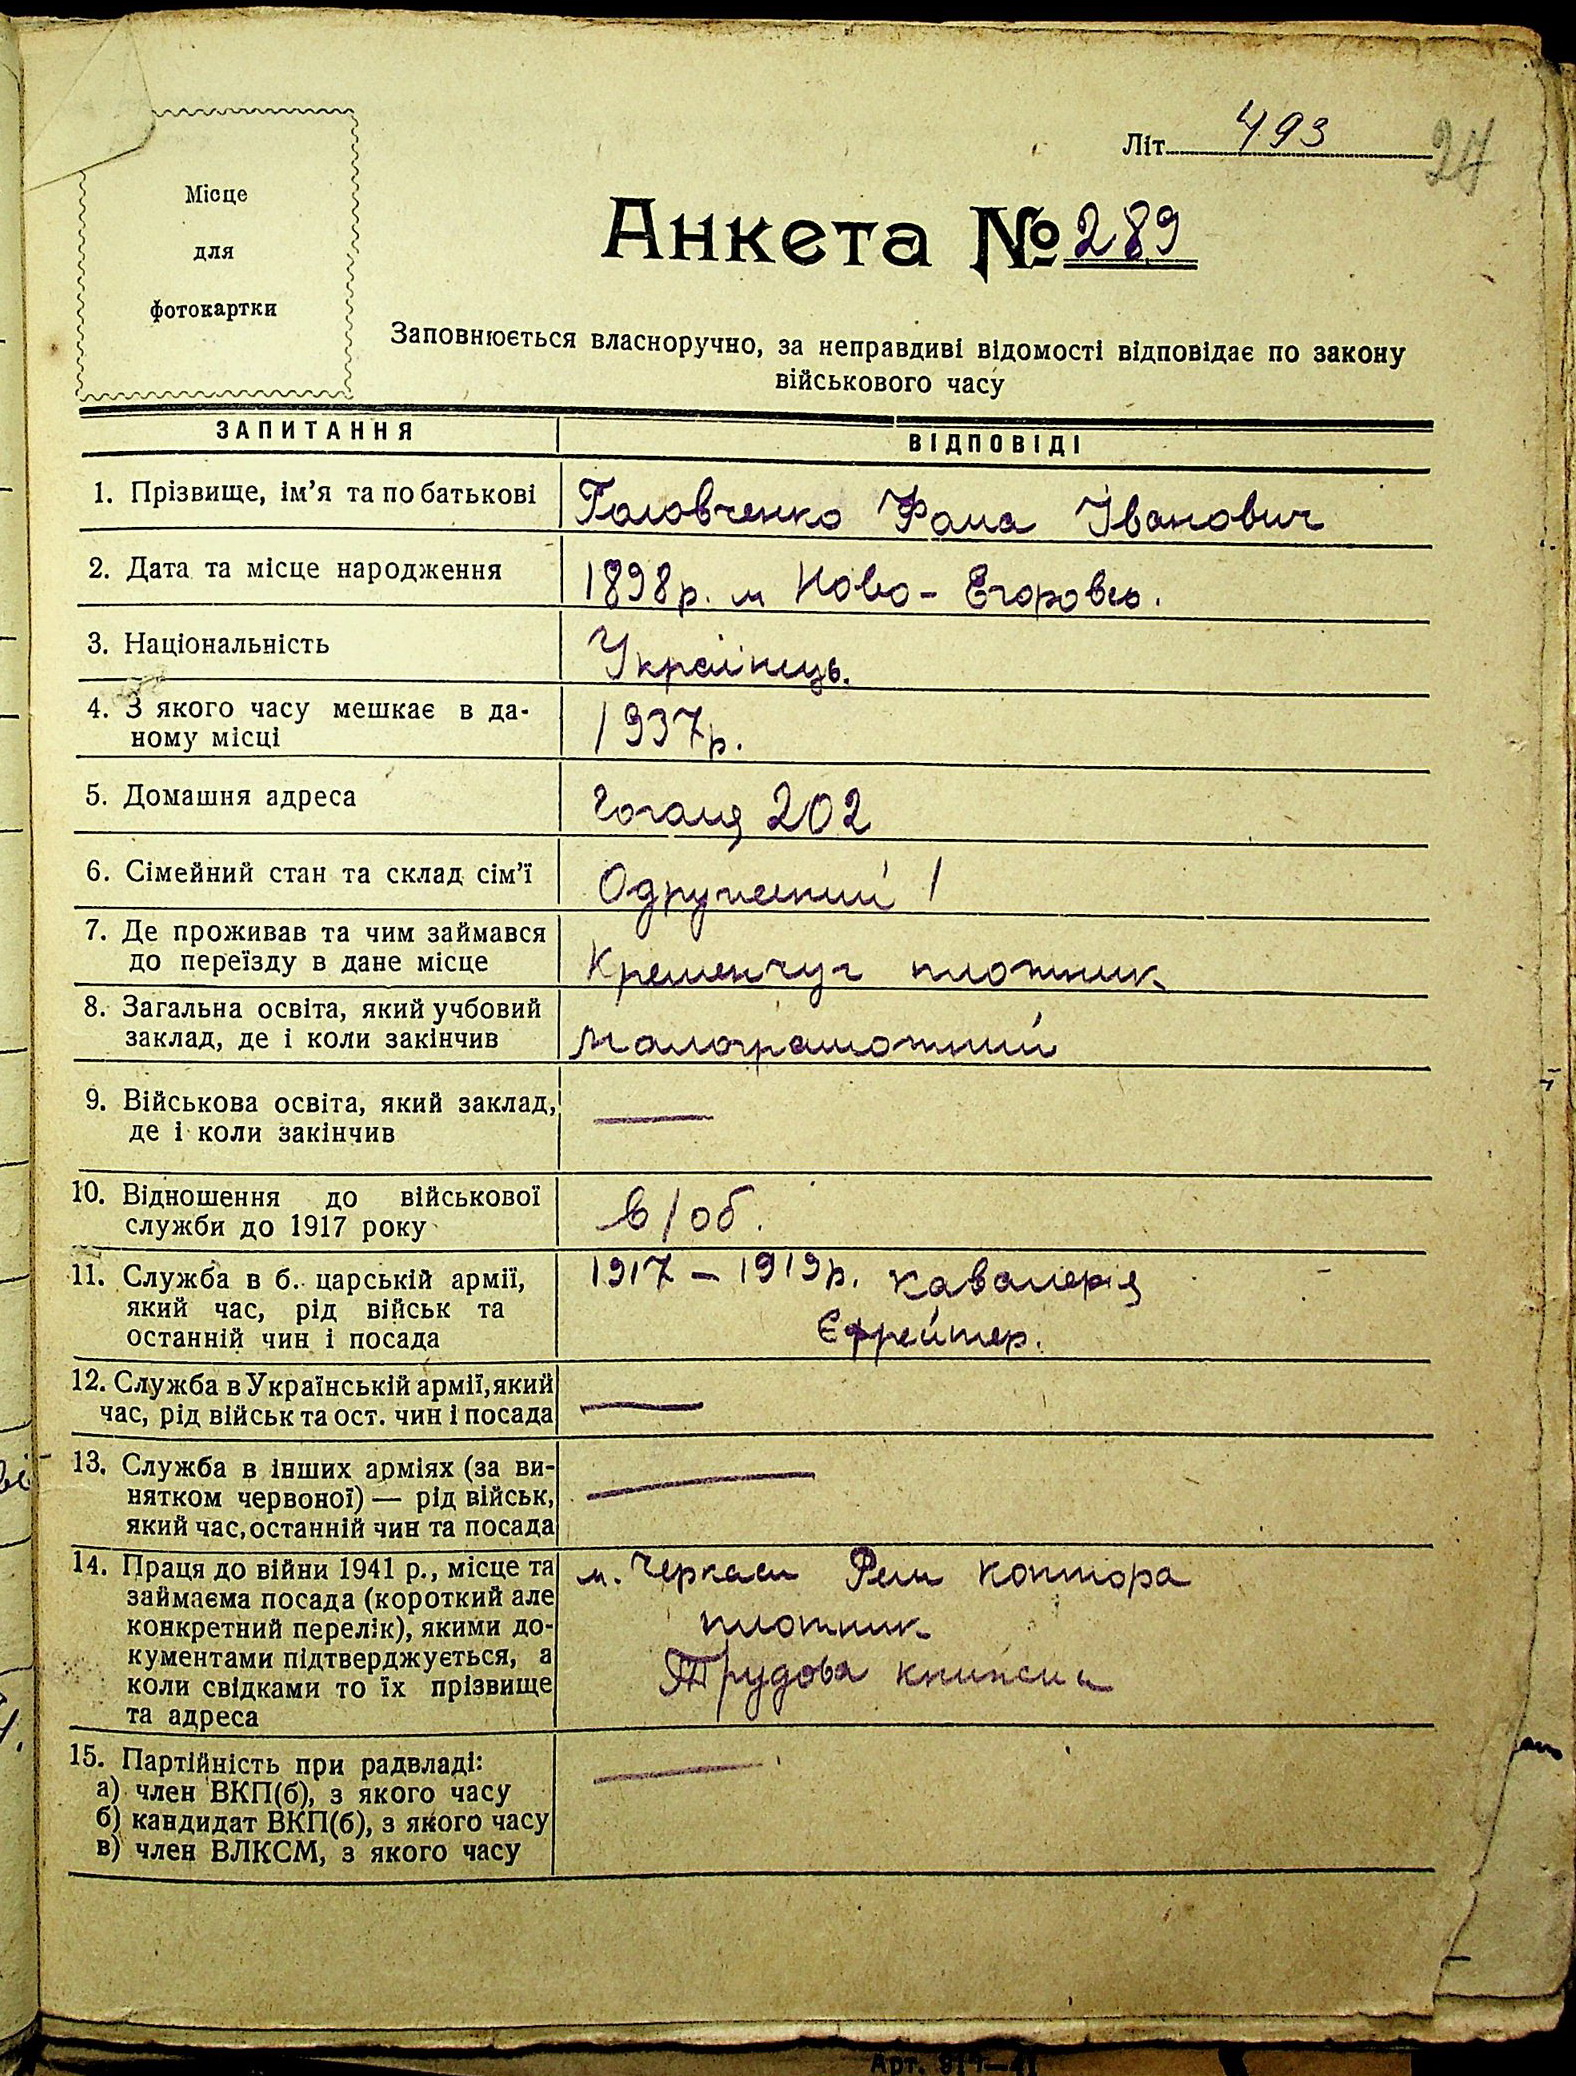 Літ. 493
27
Місце
для
фотокартки
Анкета № 289
Заповнюється власноручно, за неправдиві відомості відповідає по закону
військового часу
ЗАПИТАННЯ
ВІДПОВІДІ
1. Прізвище, ім'я та по батькові
Головченко Фома Іванович
2. Дата та місце народження
1898р. м Ново-Егоровсь.
3. Національність
Українець.
4. З якого часу мешкає в да-
ному місці
1937р.
5. Домашня адреса
Гоголя 202
6. Сімейний стан та склад сім'ї
Одружений 1
7. Де проживав та чим займався
до переїзду в дане місце
Кременчуг плотник
8. Загальна освіта, який учбовий
заклад, де і коли закінчив
Малограмотний
9. Військова освіта, який заклад,
де і коли закінчив
—
10. Відношення до військової
служби до 1917 року
в/об.
11. Служба в б. царській армії,
який час, рід військ та
останній чин і посада
1917 – 1919р. кавалерія
Єфрейтер.
12. Служба в Українській армії, який
час, рід військ та ост. чин і посада
—
13. Служба в інших арміях (за ви-
нятком червоної) — рід військ,
який час, останній чин та посада
—
14. Праця до війни 1941 р., місце та
займаєма посада (короткий але
конкретний перелік), якими до-
кументами підтверджується, а
коли свідками то їх прізвище
та адреса
м. Черкаси Рем контора
плотник
Трудова книжка
15. Партійність при радвладі:
а) член ВКП(б), з якого часу
б) кандидат ВКП(б), з якого часу
в) член ВЛКСМ, з якого часу
—